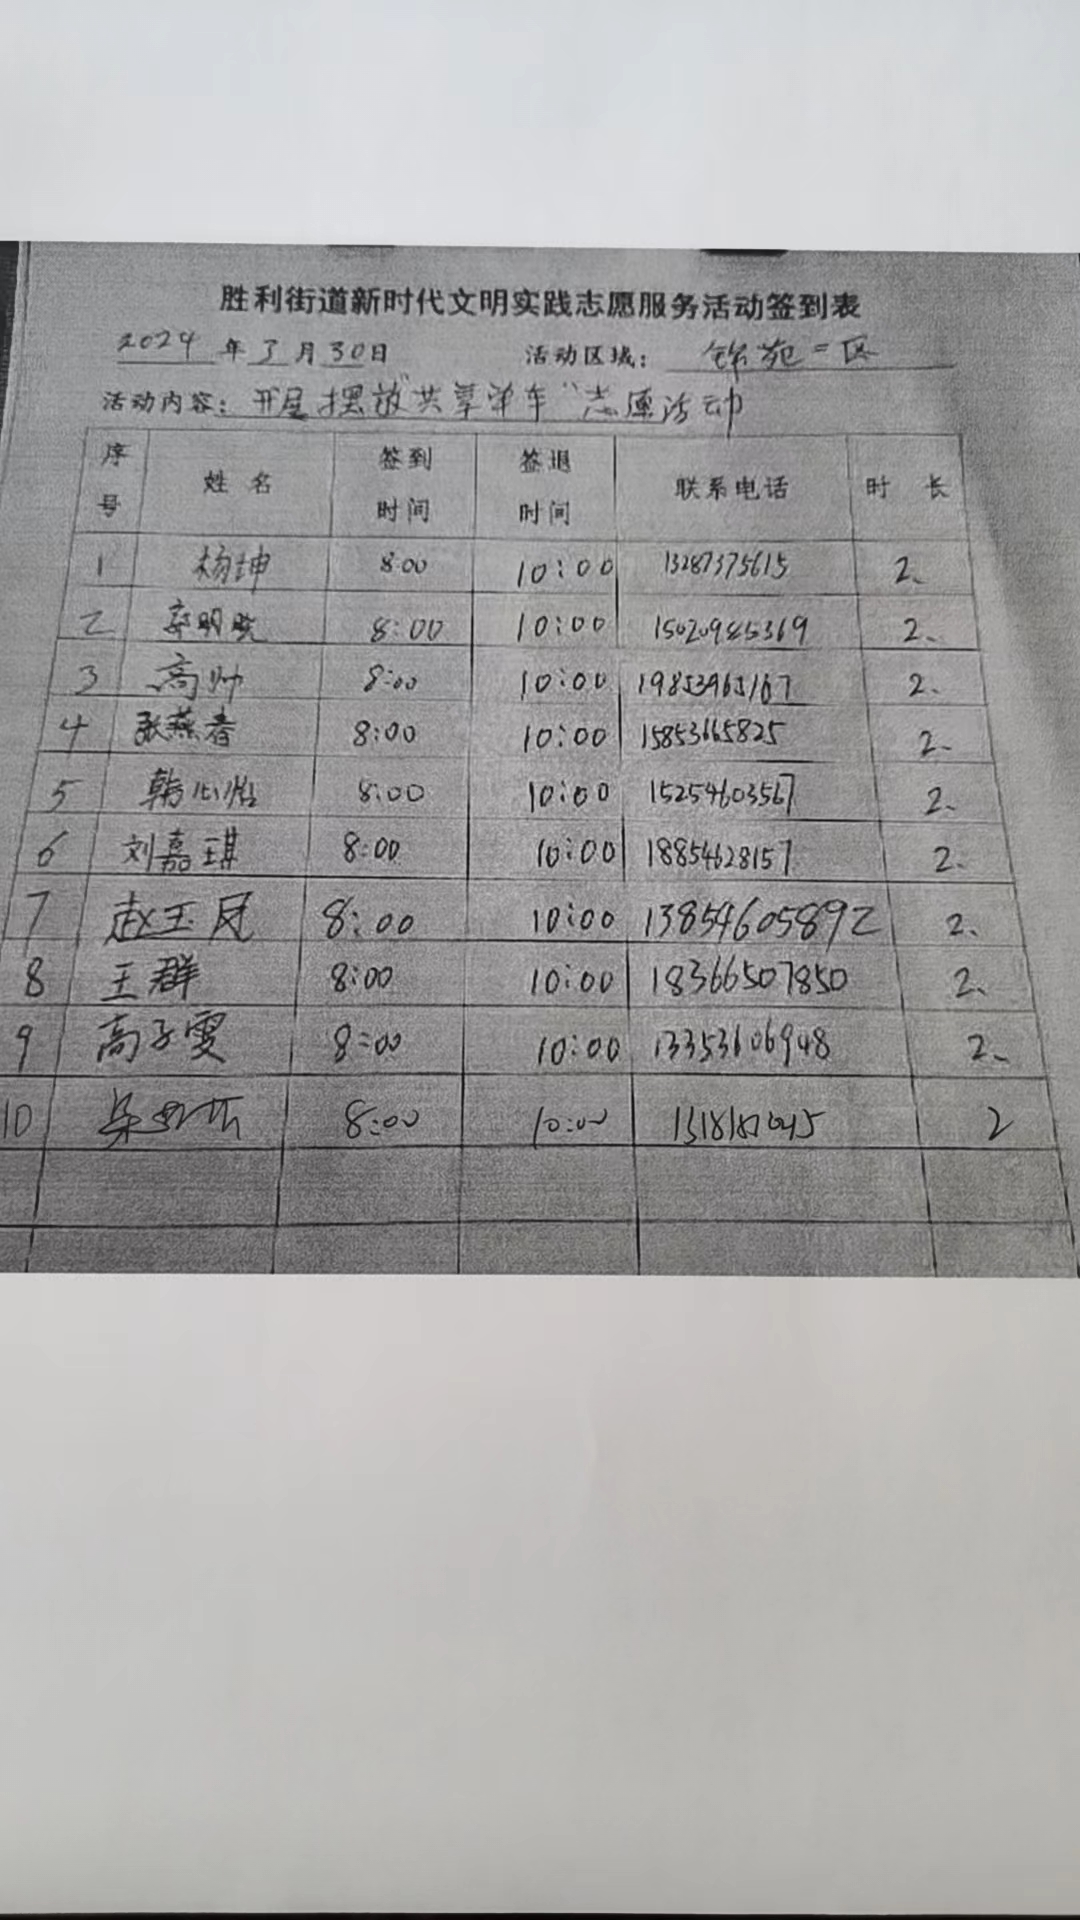 胜利街道新时代文明实践志愿服务活动签到表
2024 年 3 月 30 日 活动区域: 锦苑二区
活动内容: 开展摆放"共享单车"志愿活动
序号 姓名 签到时间 签退时间 联系电话 时长
1 杨坤 8:00 10:00 13287375615 2、
2 明晓 8:00 10:00 2、
3 高帅 8:00 10:00 19853965167 2、
4 张燕春 8:00 10:00 15853665825 2、
5 韩心怡 8:00 10:00 15254603567 2、
6 刘嘉琪 8:00 10:00 18854628157 2、
7 赵玉凤 8:00 10:00 13854605892 2、
8 王群 8:00 10:00 18366507850 2、
9 高子雯 8:00 10:00 13353606948 2、
10 8:00 10:00 2